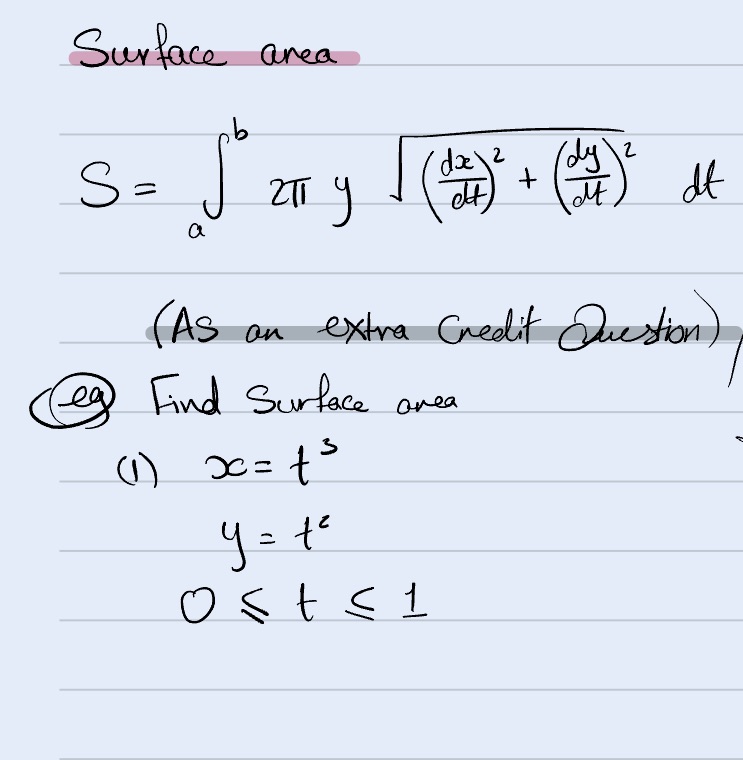 Surface area
S = ∫_a^b 2π y √((dx/dt)² + (dy/dt)²) dt
(As an extra Credit Question)
eg Find Surface area
(1) x = t³
y = t²
0 ≤ t ≤ 1